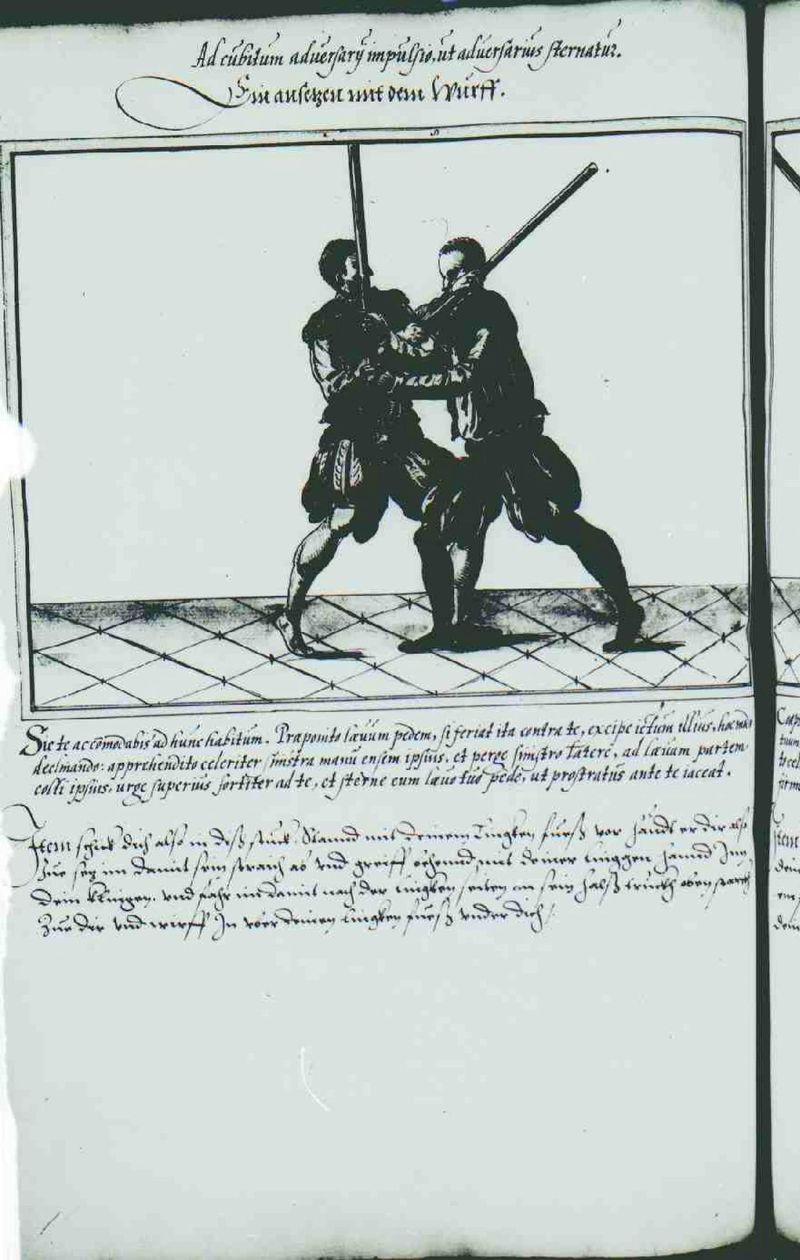 Ad cubitum adversarÿ impulsio, ut adversarius sternatur.
Ein ansetzen mit dem Wurff.
Sic te accomodabis ad hunc habitum. Præponito lævum pedem, si feriat ita contra te, excipe ictum illius, hoc modo
declinando: apprehendito celeriter sinistra manu ensem ipsius, et perge sinistro latere, ad lævam partem
colli ipsius, urge superius fortiter ad te, et sterne eum lævo tuo pede, ut prostratus ante te iaceat.
Item schick dich also in diß stuck. Stannd mit deinem Lingken fueß vor, haudt er dir also
Zue, setz im damit sein straich ab vnd greiff ... mit deiner linggen hannd Inn
dein klingen, vnd fahr im damit nach der lingken seiten an sein halß truckh oben starckh
Zue dir vnd wirff In vber deinen lingken fueß vnder dich
Item